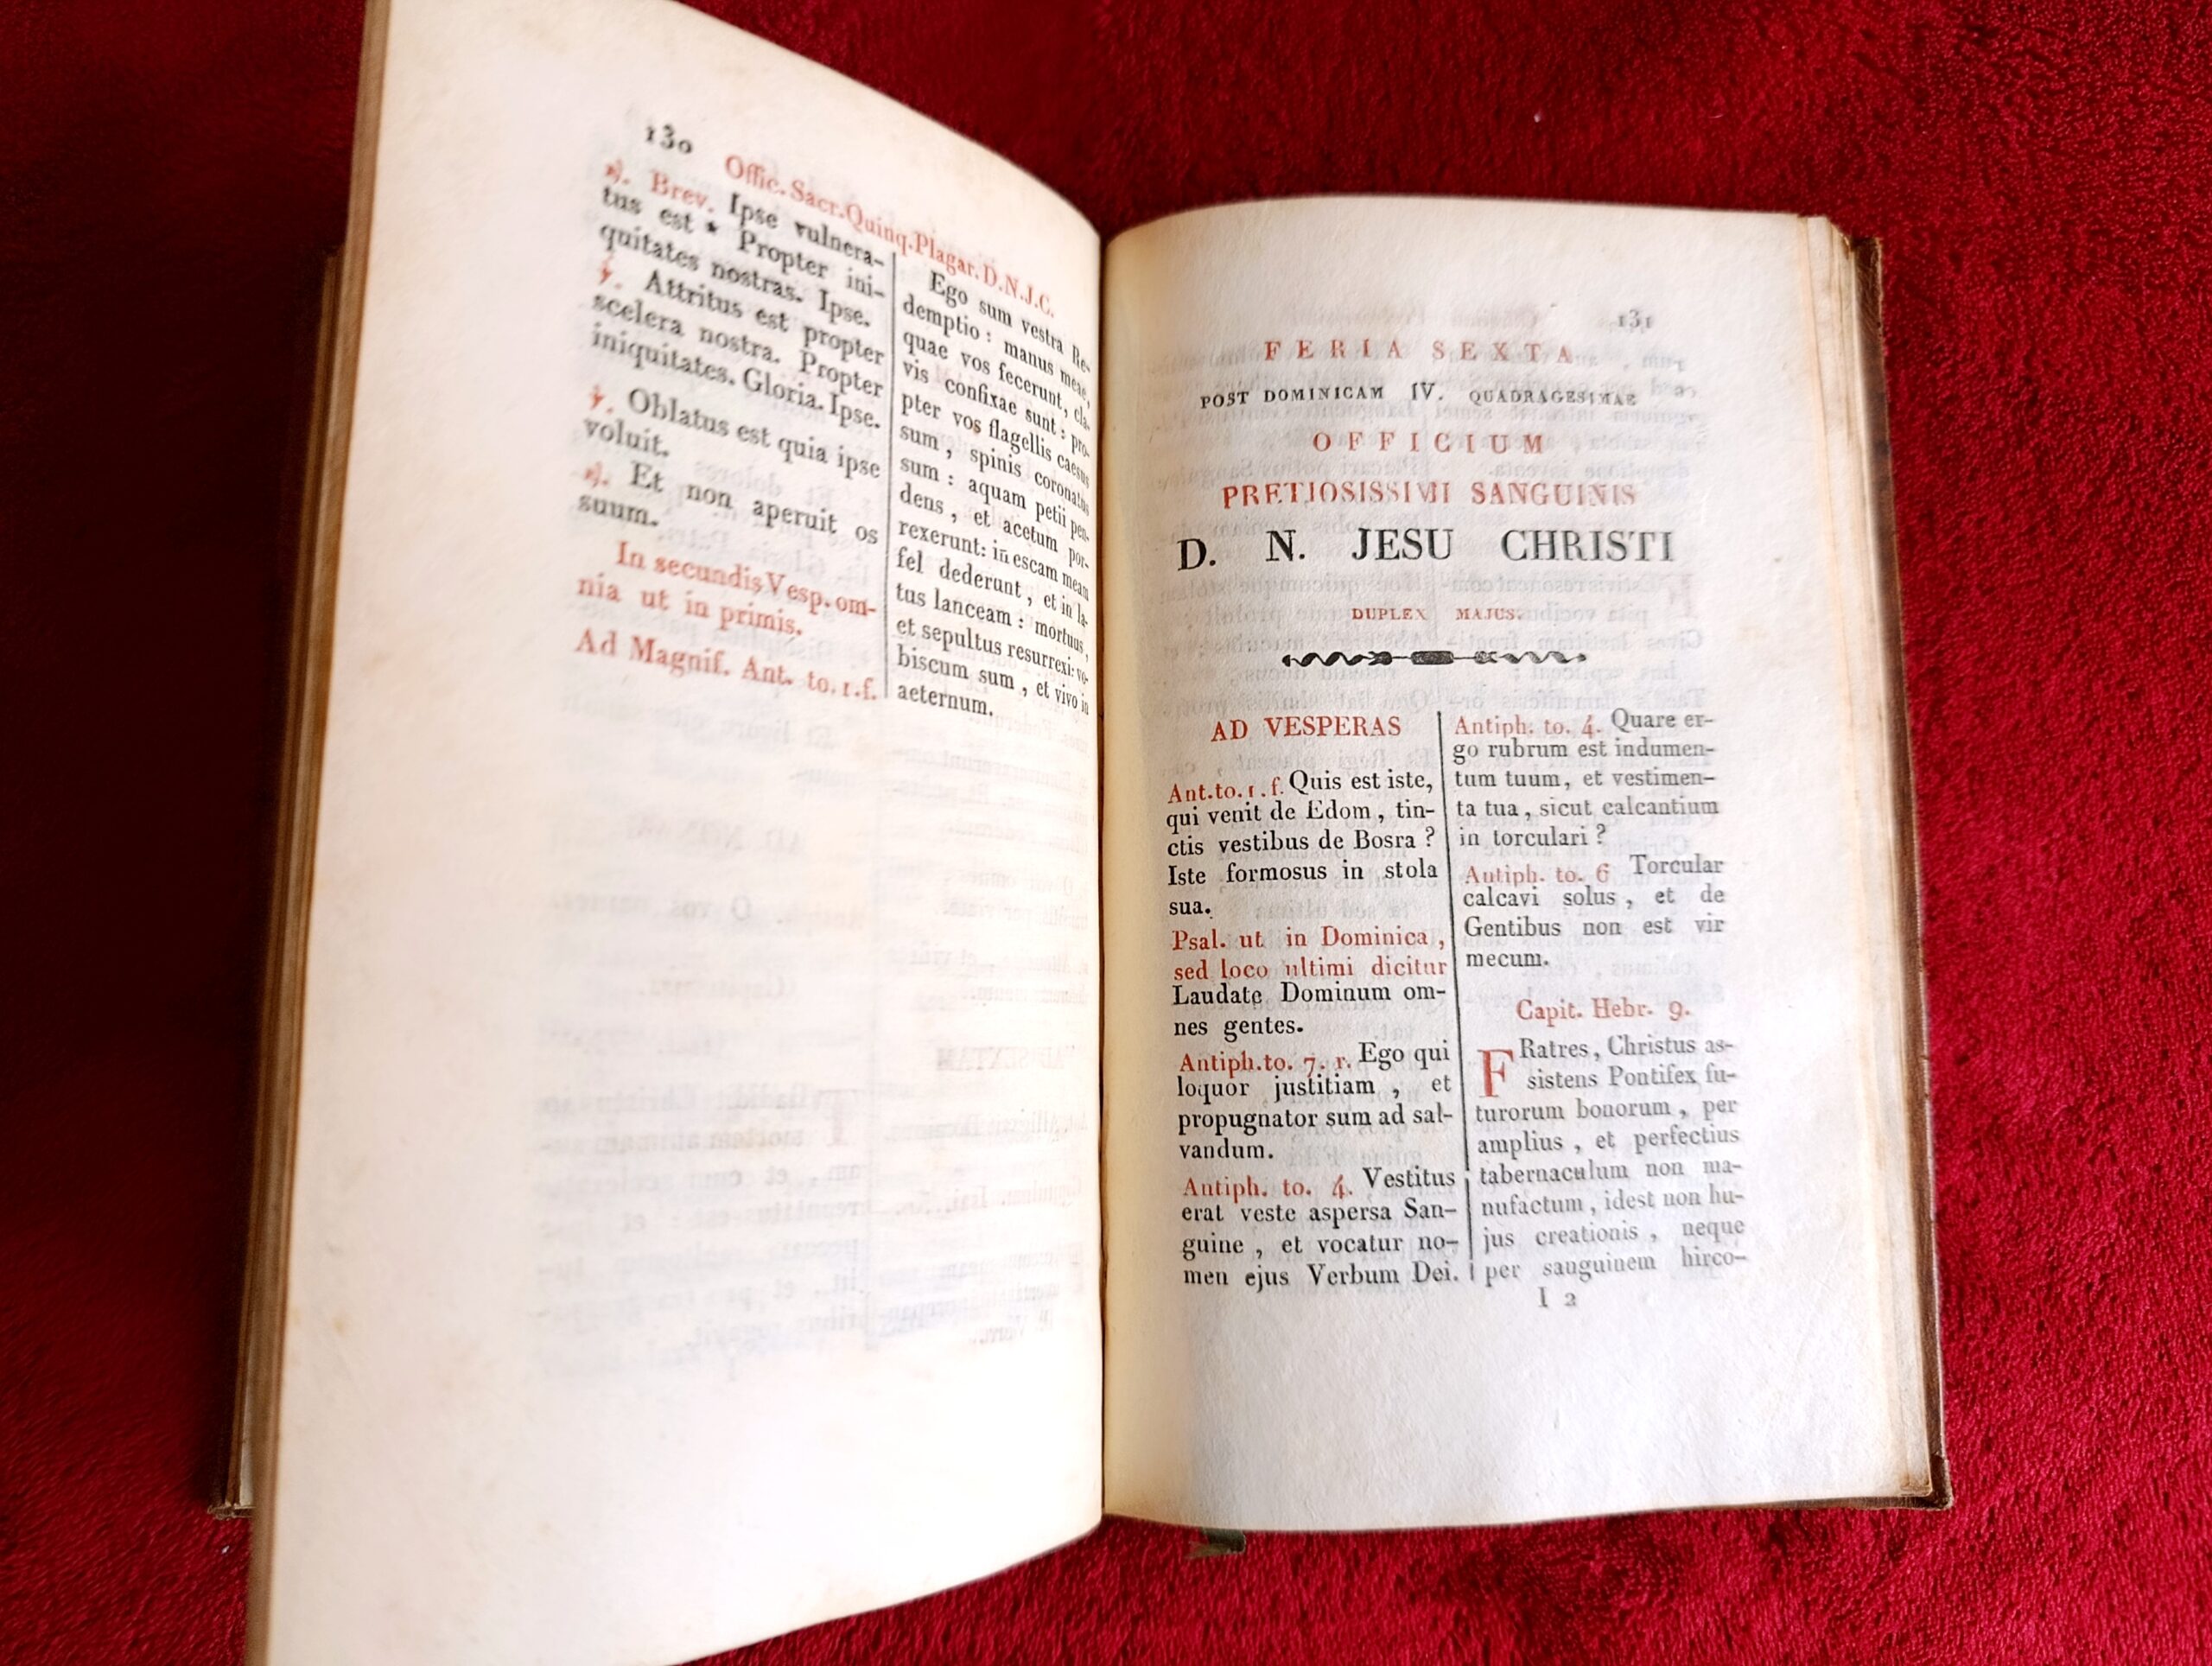 130
Offic. Sacr. Quinq. Plagar. D. N. J. C.
℟. Brev. Ipse vulnera-
tus est * Propter ini-
quitates nostras. Ipse.
℣. Attritus est propter
scelera nostra. Propter
iniquitates. Gloria. Ipse.
℣. Oblatus est quia ipse
voluit.
℟. Et non aperuit os
suum.
In secundis Vesp. om-
nia ut in primis.
Ad Magnif. Ant. to. 1. f.
Ego sum vestra Re-
demptio : manus meae,
quae vos fecerunt, cla-
vis confixae sunt : pro-
pter vos flagellis caesus
sum , spinis coronatus
sum : aquam petii pen-
dens , et acetum por-
rexerunt: in escam meam
fel dederunt , et in la-
tus lanceam : mortuus,
et sepultus resurrexi: vo-
biscum sum , et vivo in
aeternum.
131
FERIA SEXTA
POST DOMINICAM IV. QUADRAGESIMAE
OFFICIUM
PRETIOSISSIMI SANGUINIS
D. N. JESU CHRISTI
DUPLEX MAJUS.
AD VESPERAS
Ant. to. 1. f. Quis est iste,
qui venit de Edom , tin-
ctis vestibus de Bosra ?
Iste formosus in stola
sua.
Psal. ut in Dominica ,
sed loco ultimi dicitur
Laudate Dominum om-
nes gentes.
Antiph. to. 7. r. Ego qui
loquor justitiam , et
propugnator sum ad sal-
vandum.
Antiph. to. 4. Vestitus
erat veste aspersa San-
guine , et vocatur no-
men ejus Verbum Dei.
Antiph. to. 4. Quare er-
go rubrum est indumen-
tum tuum, et vestimen-
ta tua , sicut calcantium
in torculari ?
Antiph. to. 6 Torcular
calcavi solus , et de
Gentibus non est vir
mecum.
Capit. Hebr. 9.
FRatres , Christus as-
sistens Pontifex fu-
turorum bonorum , per
amplius , et perfectius
tabernaculum non ma-
nufactum , idest non hu-
jus creationis , neque
per sanguinem hirco-
I 2